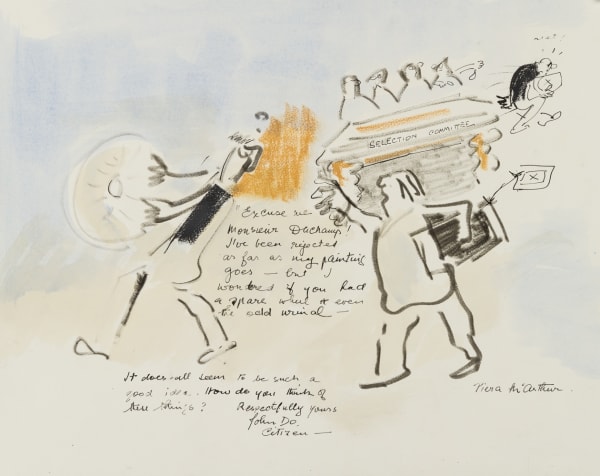 wet!
SELECTION COMMITTEE
X
"Excuse me
Monsieur Duchamp!
I've been rejected
as far as my painting
goes — but I
wondered if you had
a spare wheel or even
the odd urinal —
It does all seem to be such a
good idea. How do you think of
these things? Respectfully yours
John Do.
Citizen —
Piera McArthur.